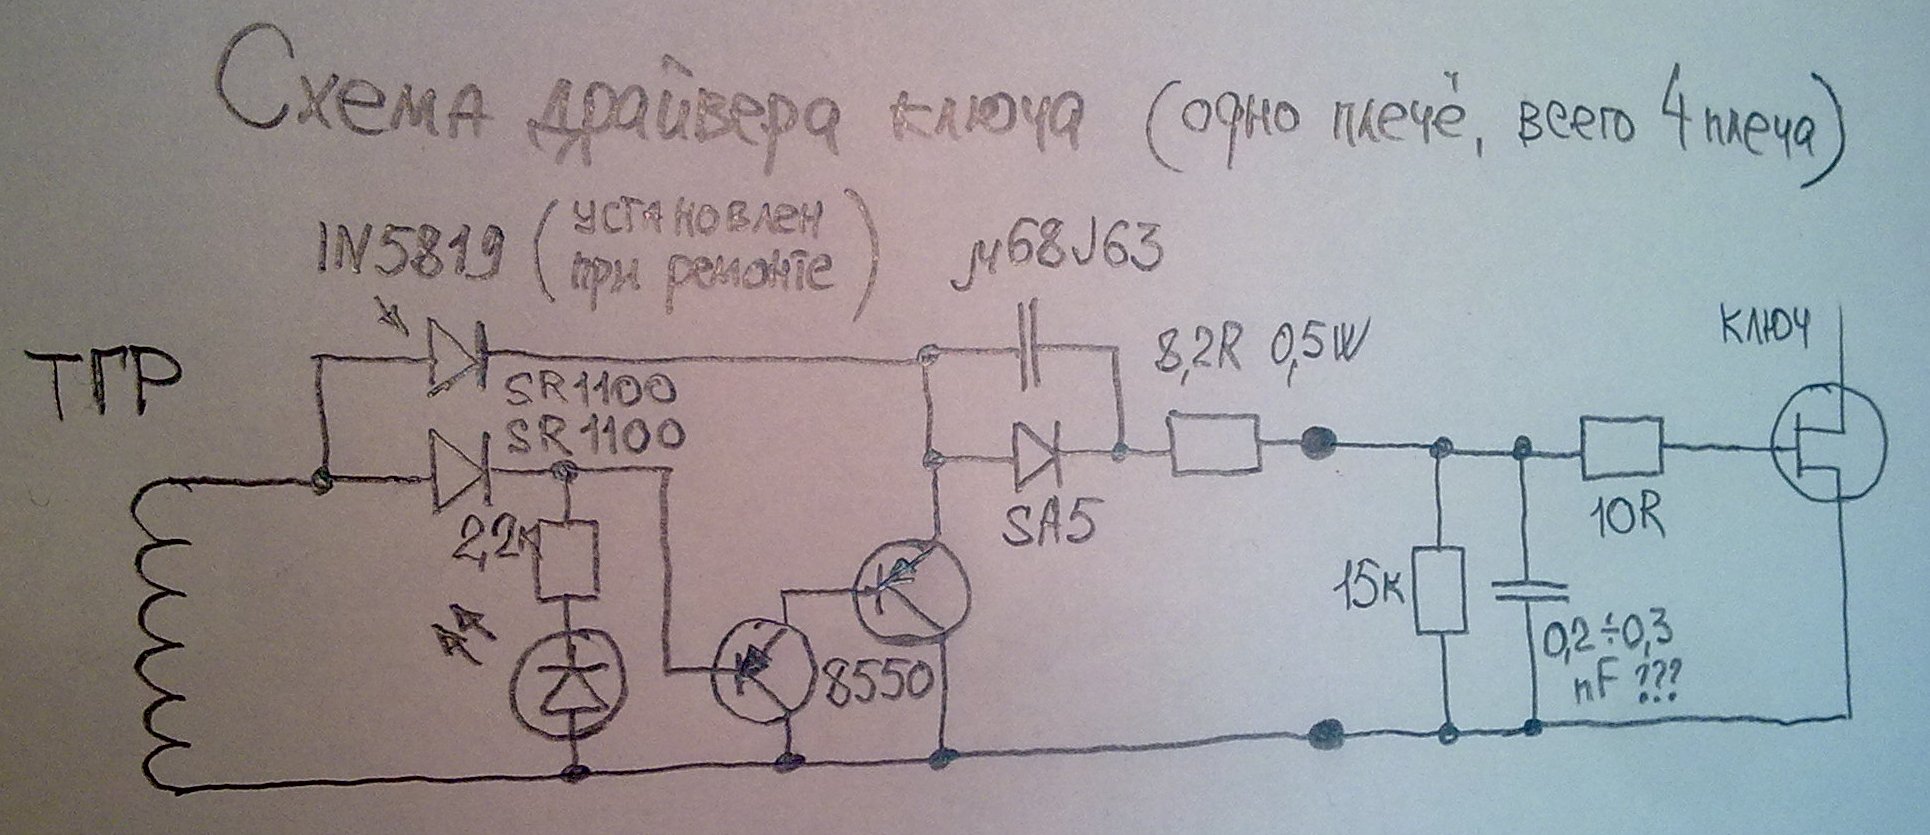 Схема драйвера ключа (одно плечё, всего 4 плеча)
IN5819 (установлен
при ремонте)
µ68J63
ТГР
SR1100
SR1100
8,2R 0,5W
ключ
2,2к
SA5
10R
15к
8550
0,2÷0,3
nF ???